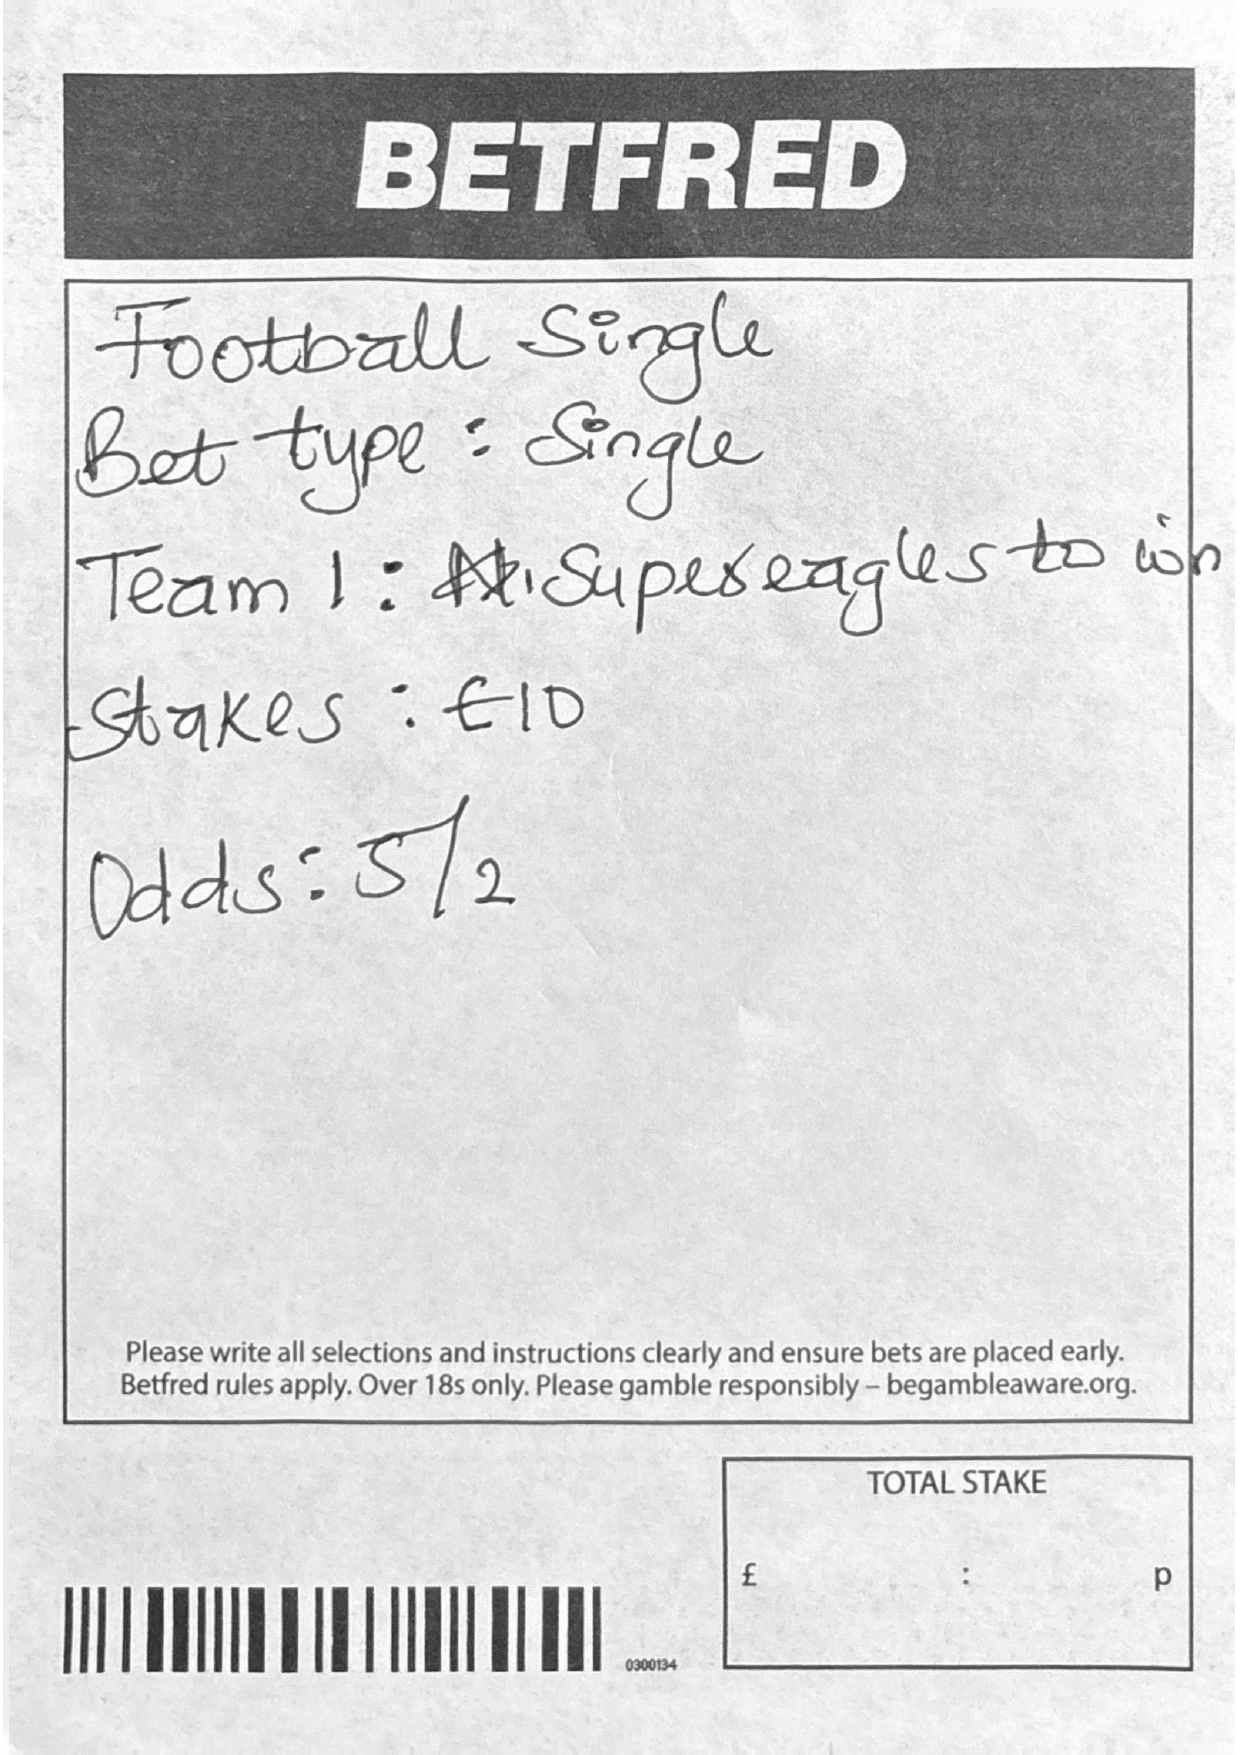 BETFRED
Football Single
Bet type : Single
Team 1 : Supereagles to win
Stakes : £10
Odds : 5/2
Please write all selections and instructions clearly and ensure bets are placed early.
Betfred rules apply. Over 18s only. Please gamble responsibly – begambleaware.org.
TOTAL STAKE
£ : p
0300134